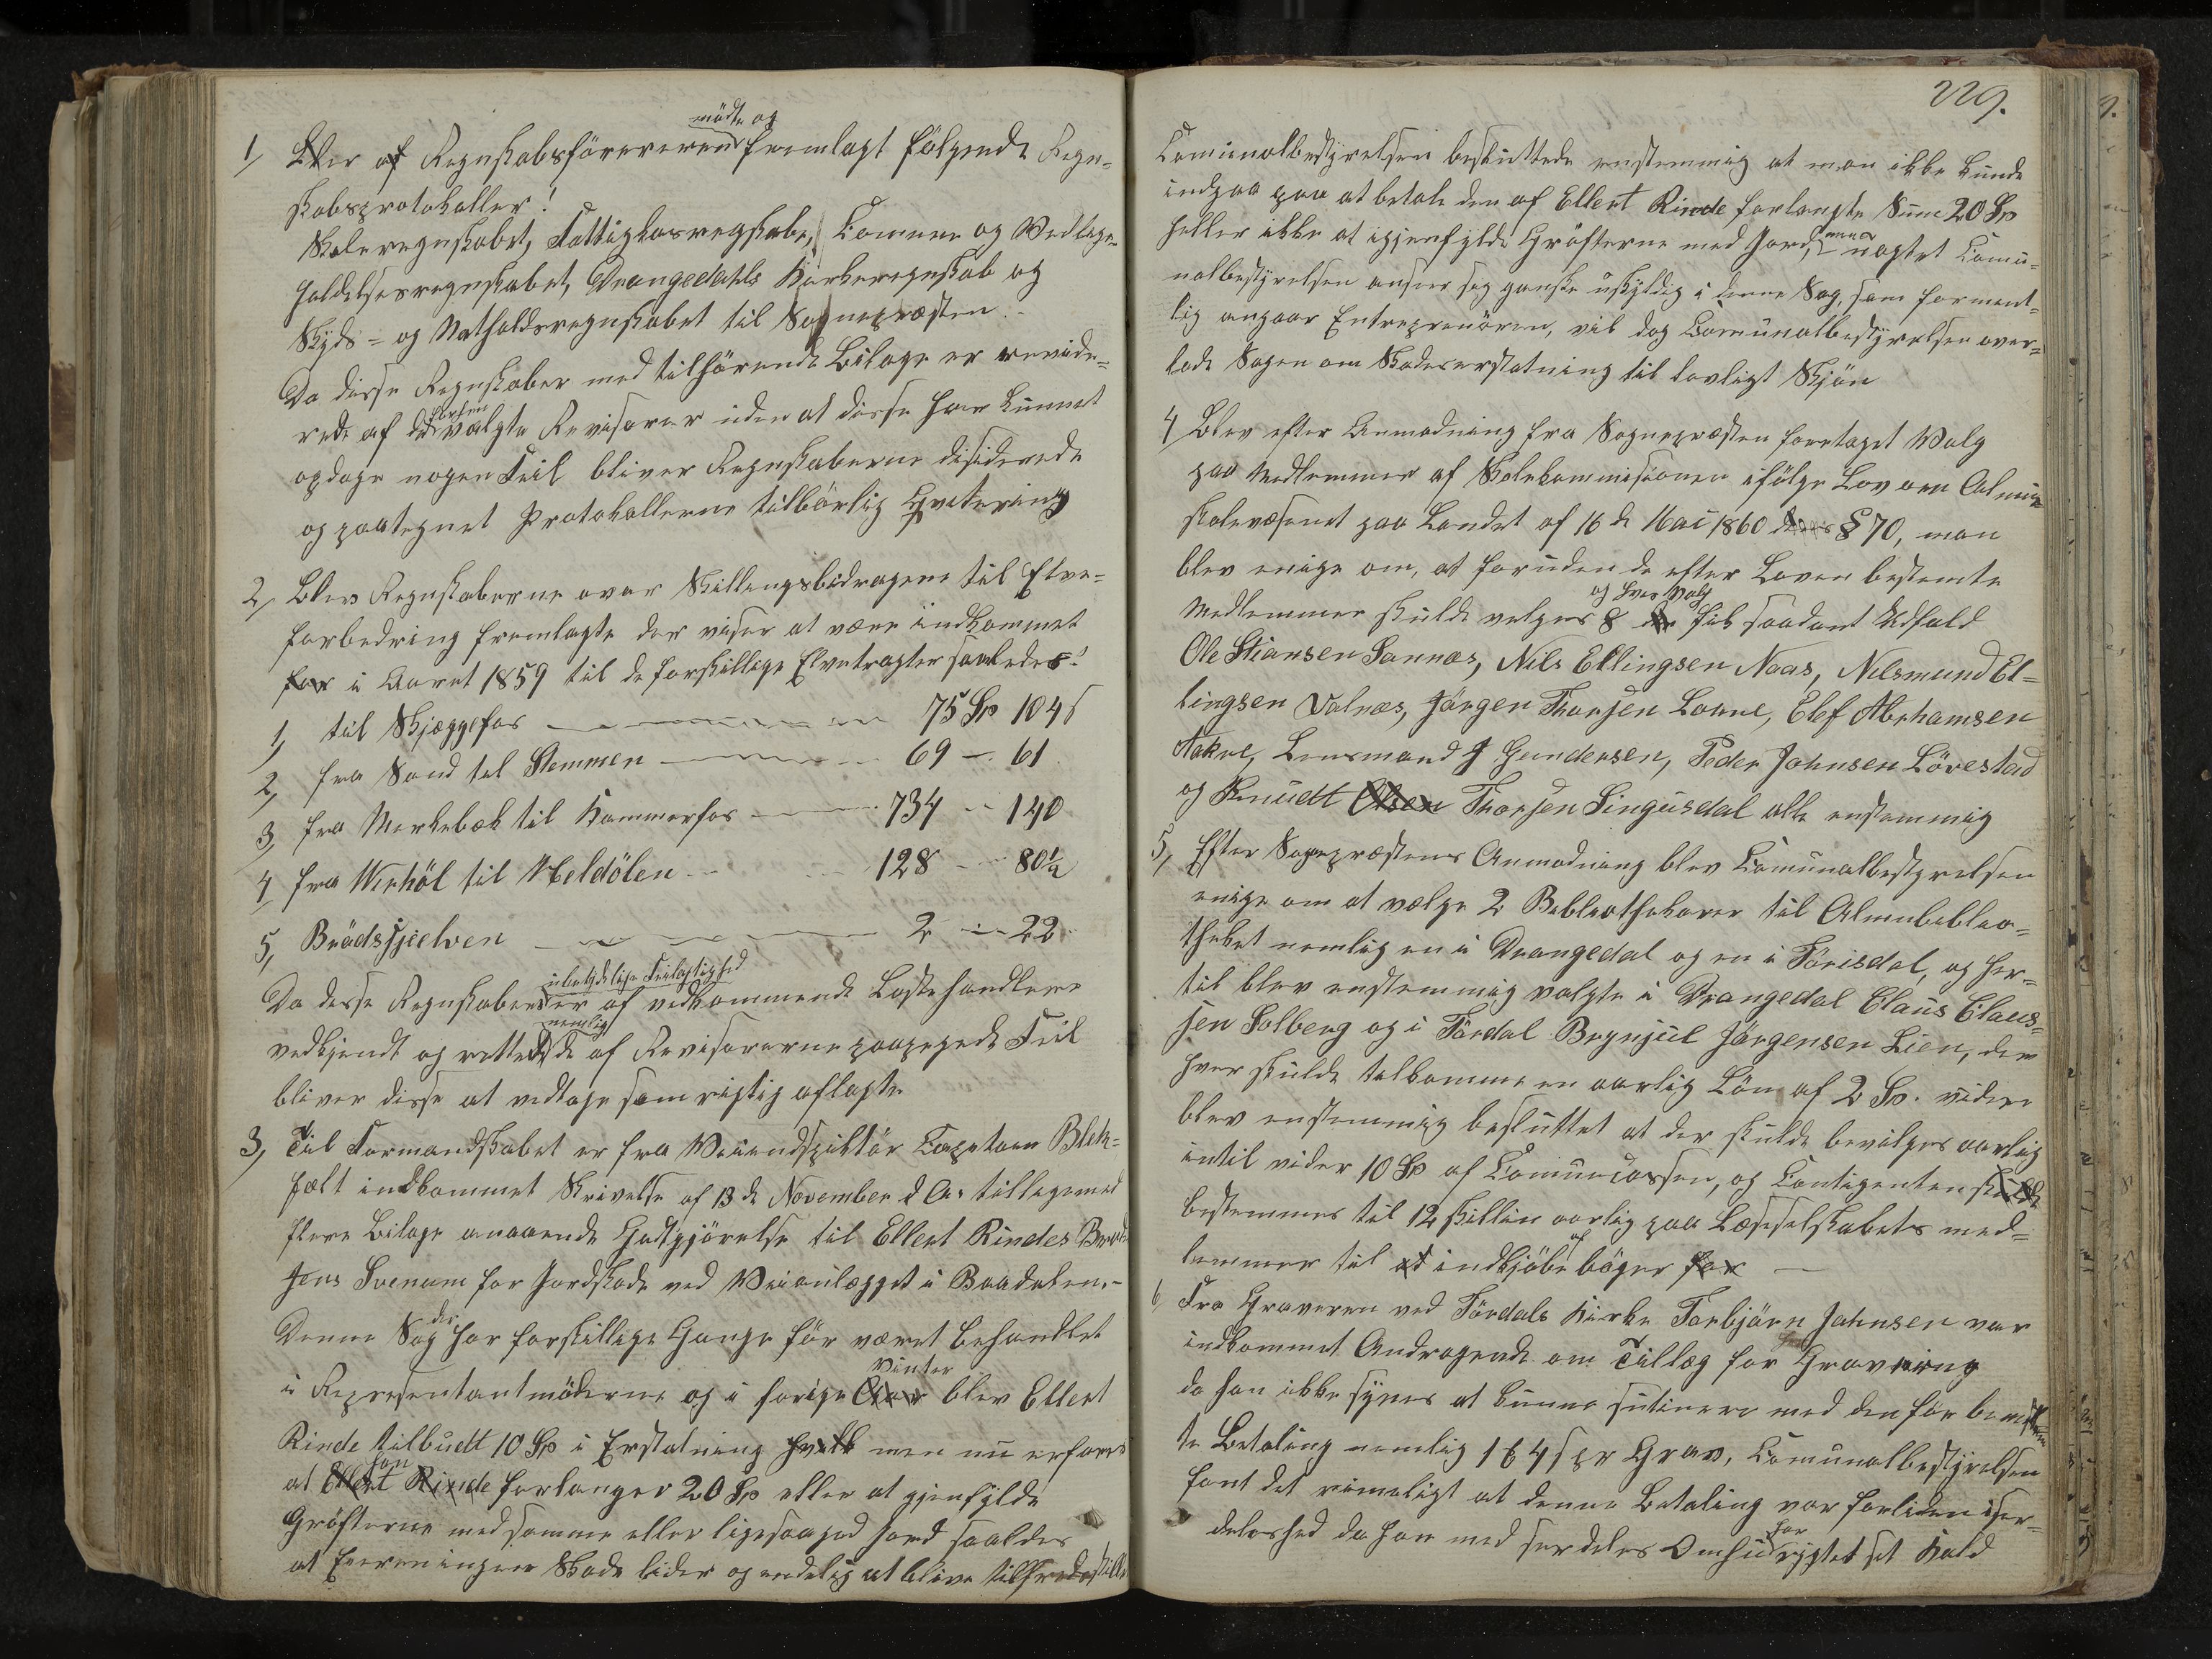 mödte og
1, Blev af Regnskabsföreren fremlagt fölgende Regn-
skabsprotokoller!
Skoleregnskabet, Fattigkasregskabe, Comune og Vedlige-
holdelsesregnskabet, Drangedahls Kirkeregnskab og
Skyds- og Natholdsregnskabet til Sognepræsten.
Da disse Regnskaber med tilhörende Bilage er revide-
rede af de valgte Revisorer uden at disse har kunnet
opdage nogen Feil bliver Regnskaberne disiderede
og paategnet Protokollerne tilbörlig Qvitering
2, Blev Regnskaberne over Skillingsbidragene til Elve-
forbedring fremlagte der viser at være indkommet
for i Aaret 1859 til de forskillige Elvetragter saaledes!
1, til Skjæggefos 75 Sp 104 s
2, fra Sand til Stemmen 69 - 61
3, fra Merkebæk til Kammerfos 734 - 140
4, fra Werhöl til Heldölen 128 - 80½
5, Brödsjielven 2 - 22
ubetydelige Feilagtighed
Da disse Regnskaber er af vedkommende Lastehandlere
nemlig
vedkjendt og rettet de af Revisorerne paapegede Feil
bliver disse at vedtage som rigtig aflagte
3, Til Formandskabet er fra Veiindspiktör Capetain Blek-
fælt indkommet Skrivelse af 13de November d A. tilligemed
flere Bilage angaaende Godtgjörelse til Ellert Rindes
Jens Svenum for Jordskade ved Veianlægget i Baadalen.-
der
Denne Sag har forskillige Gange för været behandlet
Vinter
i Representantmöderne og i forige Aar blev Ellert
Rinde tilbudt 10 Sp i Erstatning hvilk men nu erfares
han
at Ellert Rinde forlanger 20 Sp eller at gjenfylde
Gröfterne med samme eller ligesaagod Jord saaledes
at Eieren ingen Skade lider og endelig at blive tilfredsstille
229.
Comunalbestyrelsen besluttede enstemmig at man ikke kunde
indgaa paa at betale den af Ellert Rinde forlangte Sum 20 Sp
heller ikke at igjenfylde Gröfterne med Jord, uagtet Comu-
nalbestyrelsen anseer seg ganske uskyldig i denne Sag, som forment-
lig angaar Entreprenören, vil dog Comunalbestyrelsen over-
lade Sagen om Skadeserstatning til lovligt Skjön
4 Blev efter Anmodning fra Sognepræsten foretaget Valg
paa Medlemmer af Skolekommisionen ifölge Lov om Almue
skolevæsenet paa Landet af 16de Mai 1860 § 70, man
blev enige om, at foruden de efter Loven bestemte
og hves Valg
Medlemmer skulde velges 8 fik saadant Udfald
Ole Stiansen Sannæs, Nils Ellingsen Naas, Nilsmund El-
lingsen Valnæs, Jörgen Thorsen Lonne, Elef Abrhamsen
Aakre, Lensmand J Gundersen, Peder Johnsen Lövestad
og Knudt Olsen Thorsen Singusdal alle enstemmig
5, Efter Sognepræstens Anmodning blev Comunalbestyrelsen
enige om at vælge 2 Bebliothekarer til Almubeblio-
theket nemlig en i Drangedal og en i Törisdal, og her-
til blev enstemmig valgte i Drangedal Claus Claus-
sen Solberg og i Tördal Brynjul Jörgensen Lien, der
hver skulde tilkomme en aarlig Lön af 2 Sp. videre
blev enstemmig besluttet at der skulde bevilges aarlig
intil vider 10 Sp af Comunecassen, og Contigenten skulde
bestemmes til 12 skillin aarlig paa Læseselskabets med-
af
lemmer til at indkjöbe böger for
6, Fra Graveren ved Tördals Kirke Torbjörn Johnsen var
indkommet Andragende om Tillæg for Gravning
da han ikke synes at kunne sutinere med den för bestem
te Betaling nemlig 1 64 s pr Grav, Comunalbestyrelsen
fant det rimeligt at denne Betaling var forliden iser-
har
deleshed da han med serdeles Omhu rygtet sit Kald